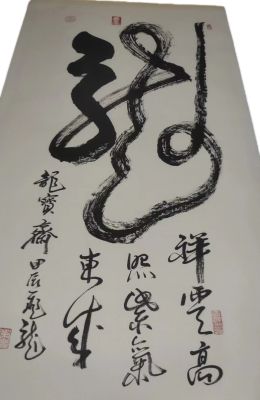 龍
祥雲高
照紫氣
東來
龍寶齋 甲辰